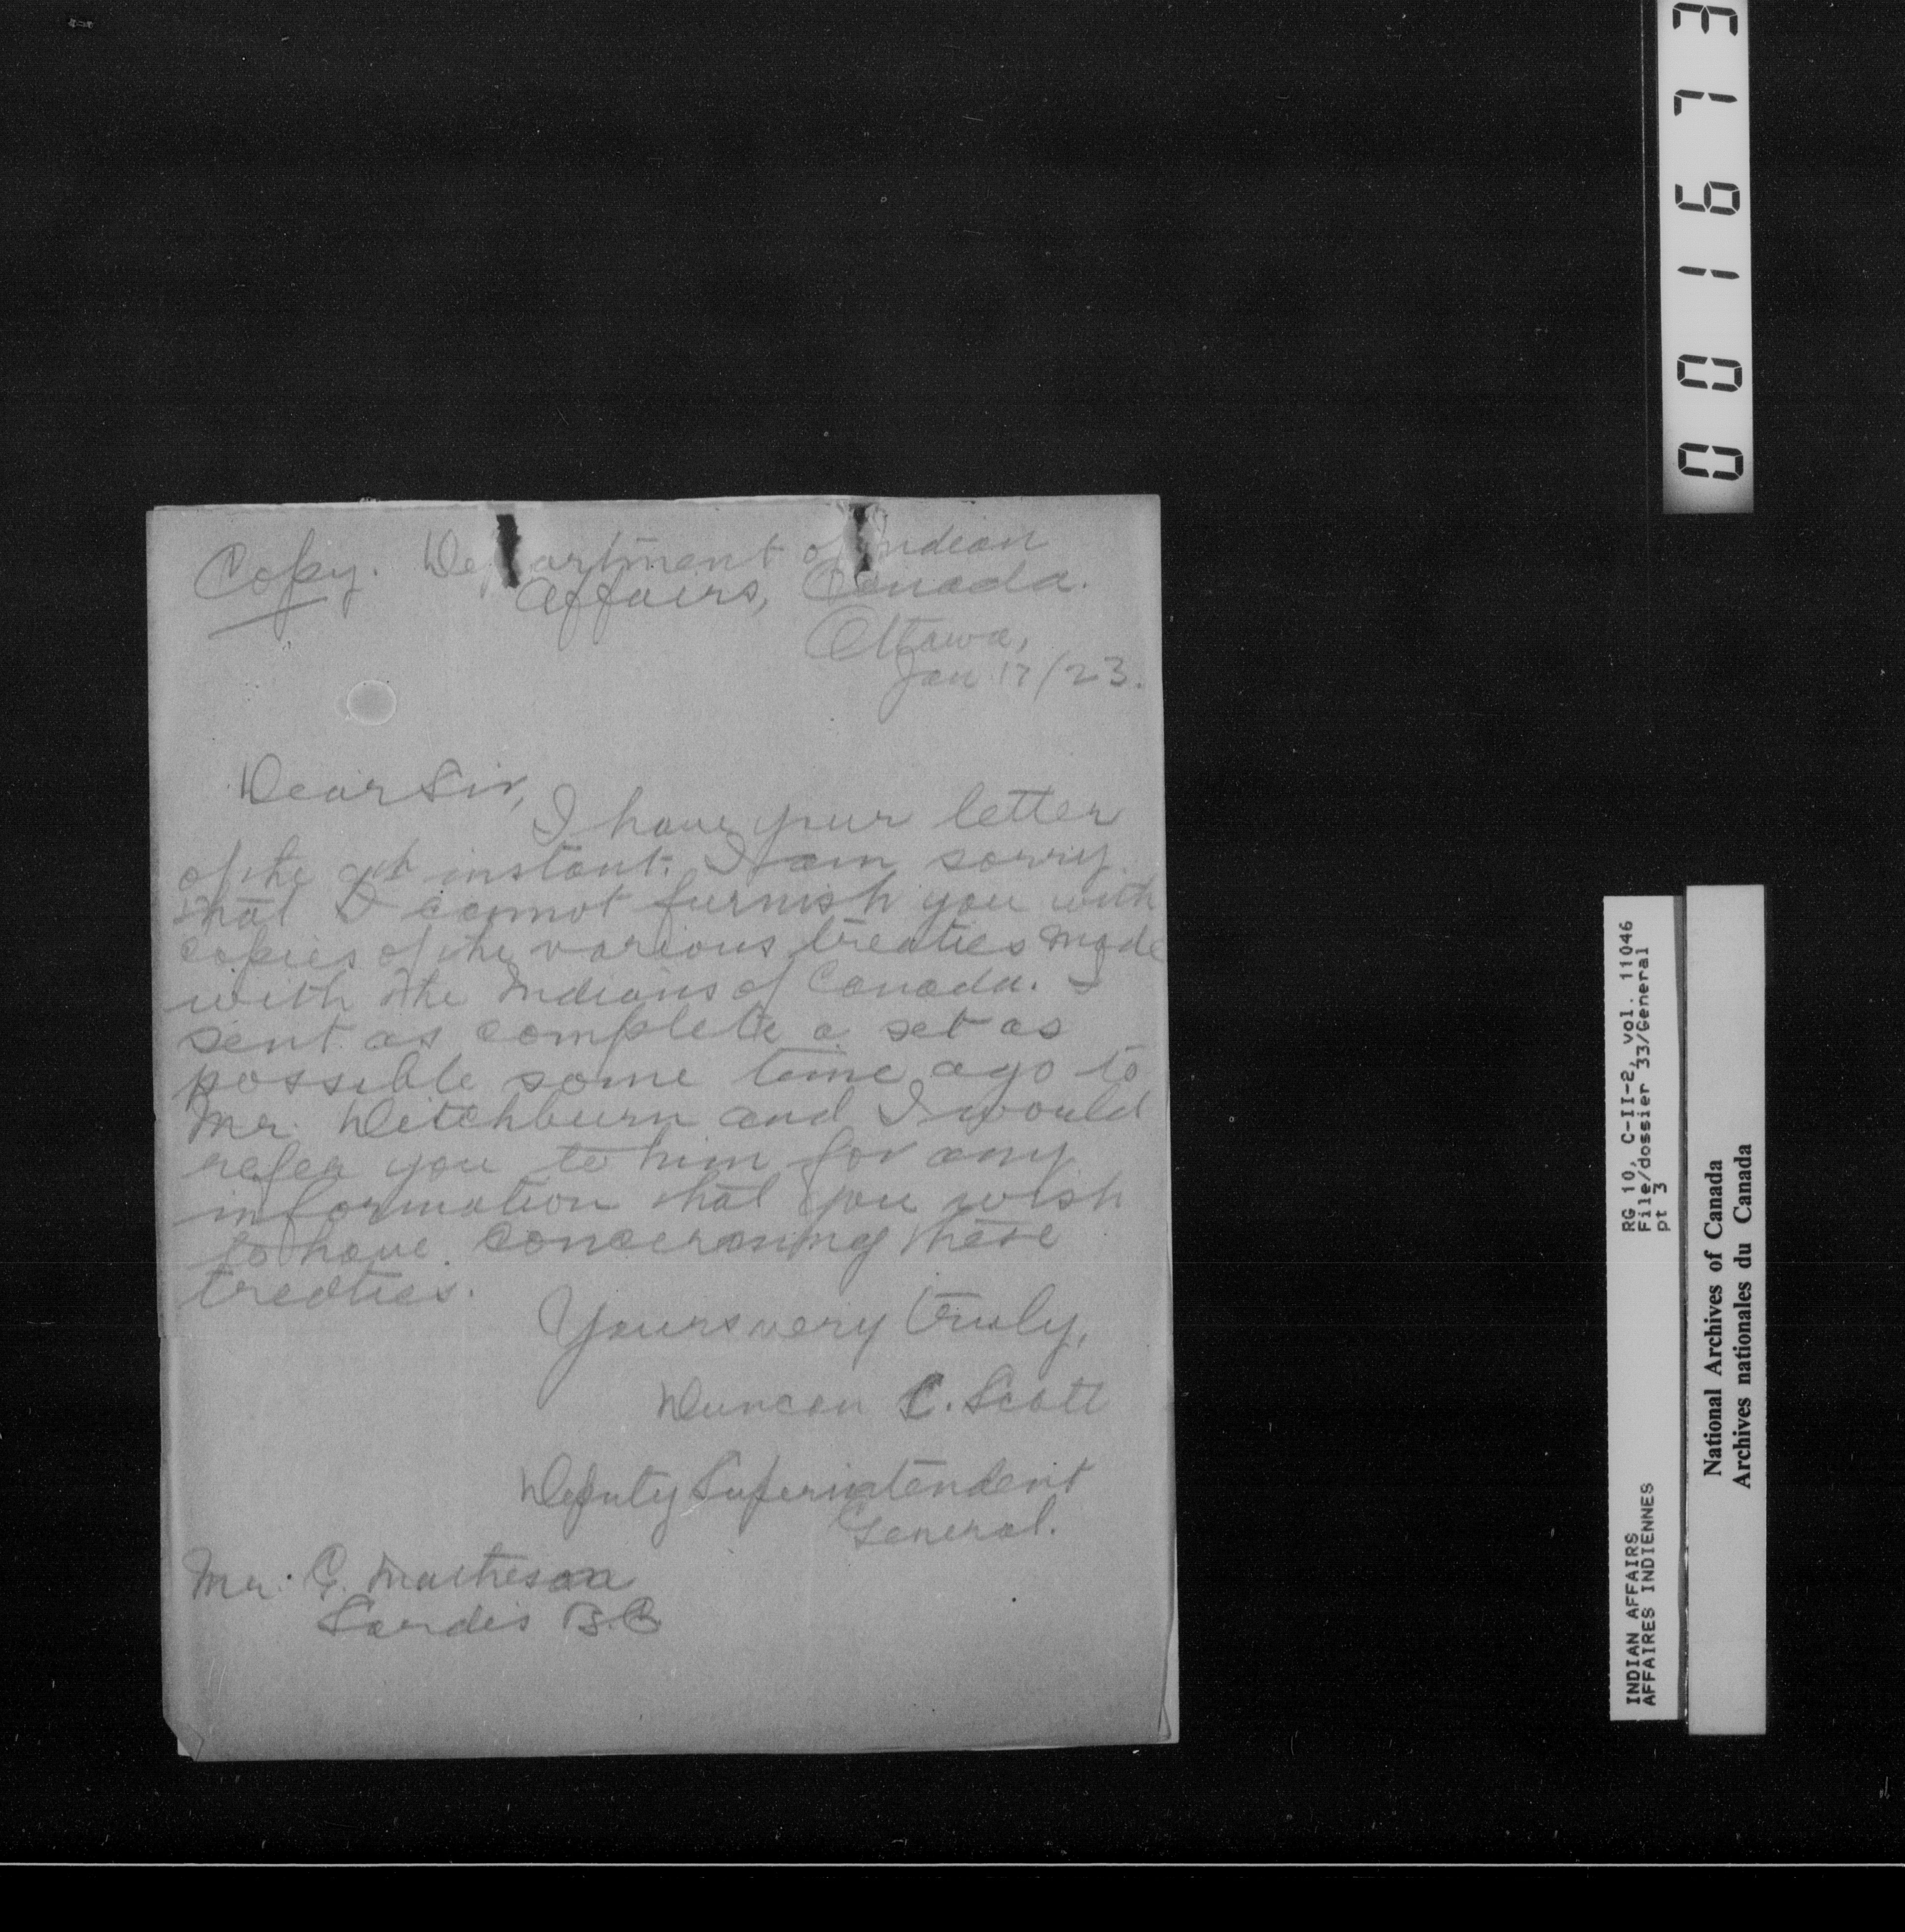 Copy. Department of Indian
Affairs, Canada.
Ottawa,
Jan 17/23.
Dear Sir,
I have your letter
of the 9th instant. I am sorry
that I cannot furnish you with
copies of the various treaties made
with the Indians of Canada. I
sent as complete a set as
possible some time ago to
Mr. Ditchburn and I would
refer you to him for any
information that you wish
to have concerning these
treaties.
Yours very truly,
Duncan C. Scott
Deputy Superintendent
General.
Mr. G. Matheson
Sardis B.C
001673
RG 10, C-II-2, vol. 11046
File/dossier 33/General
pt 3
INDIAN AFFAIRS
AFFAIRES INDIENNES
National Archives of Canada
Archives nationales du Canada